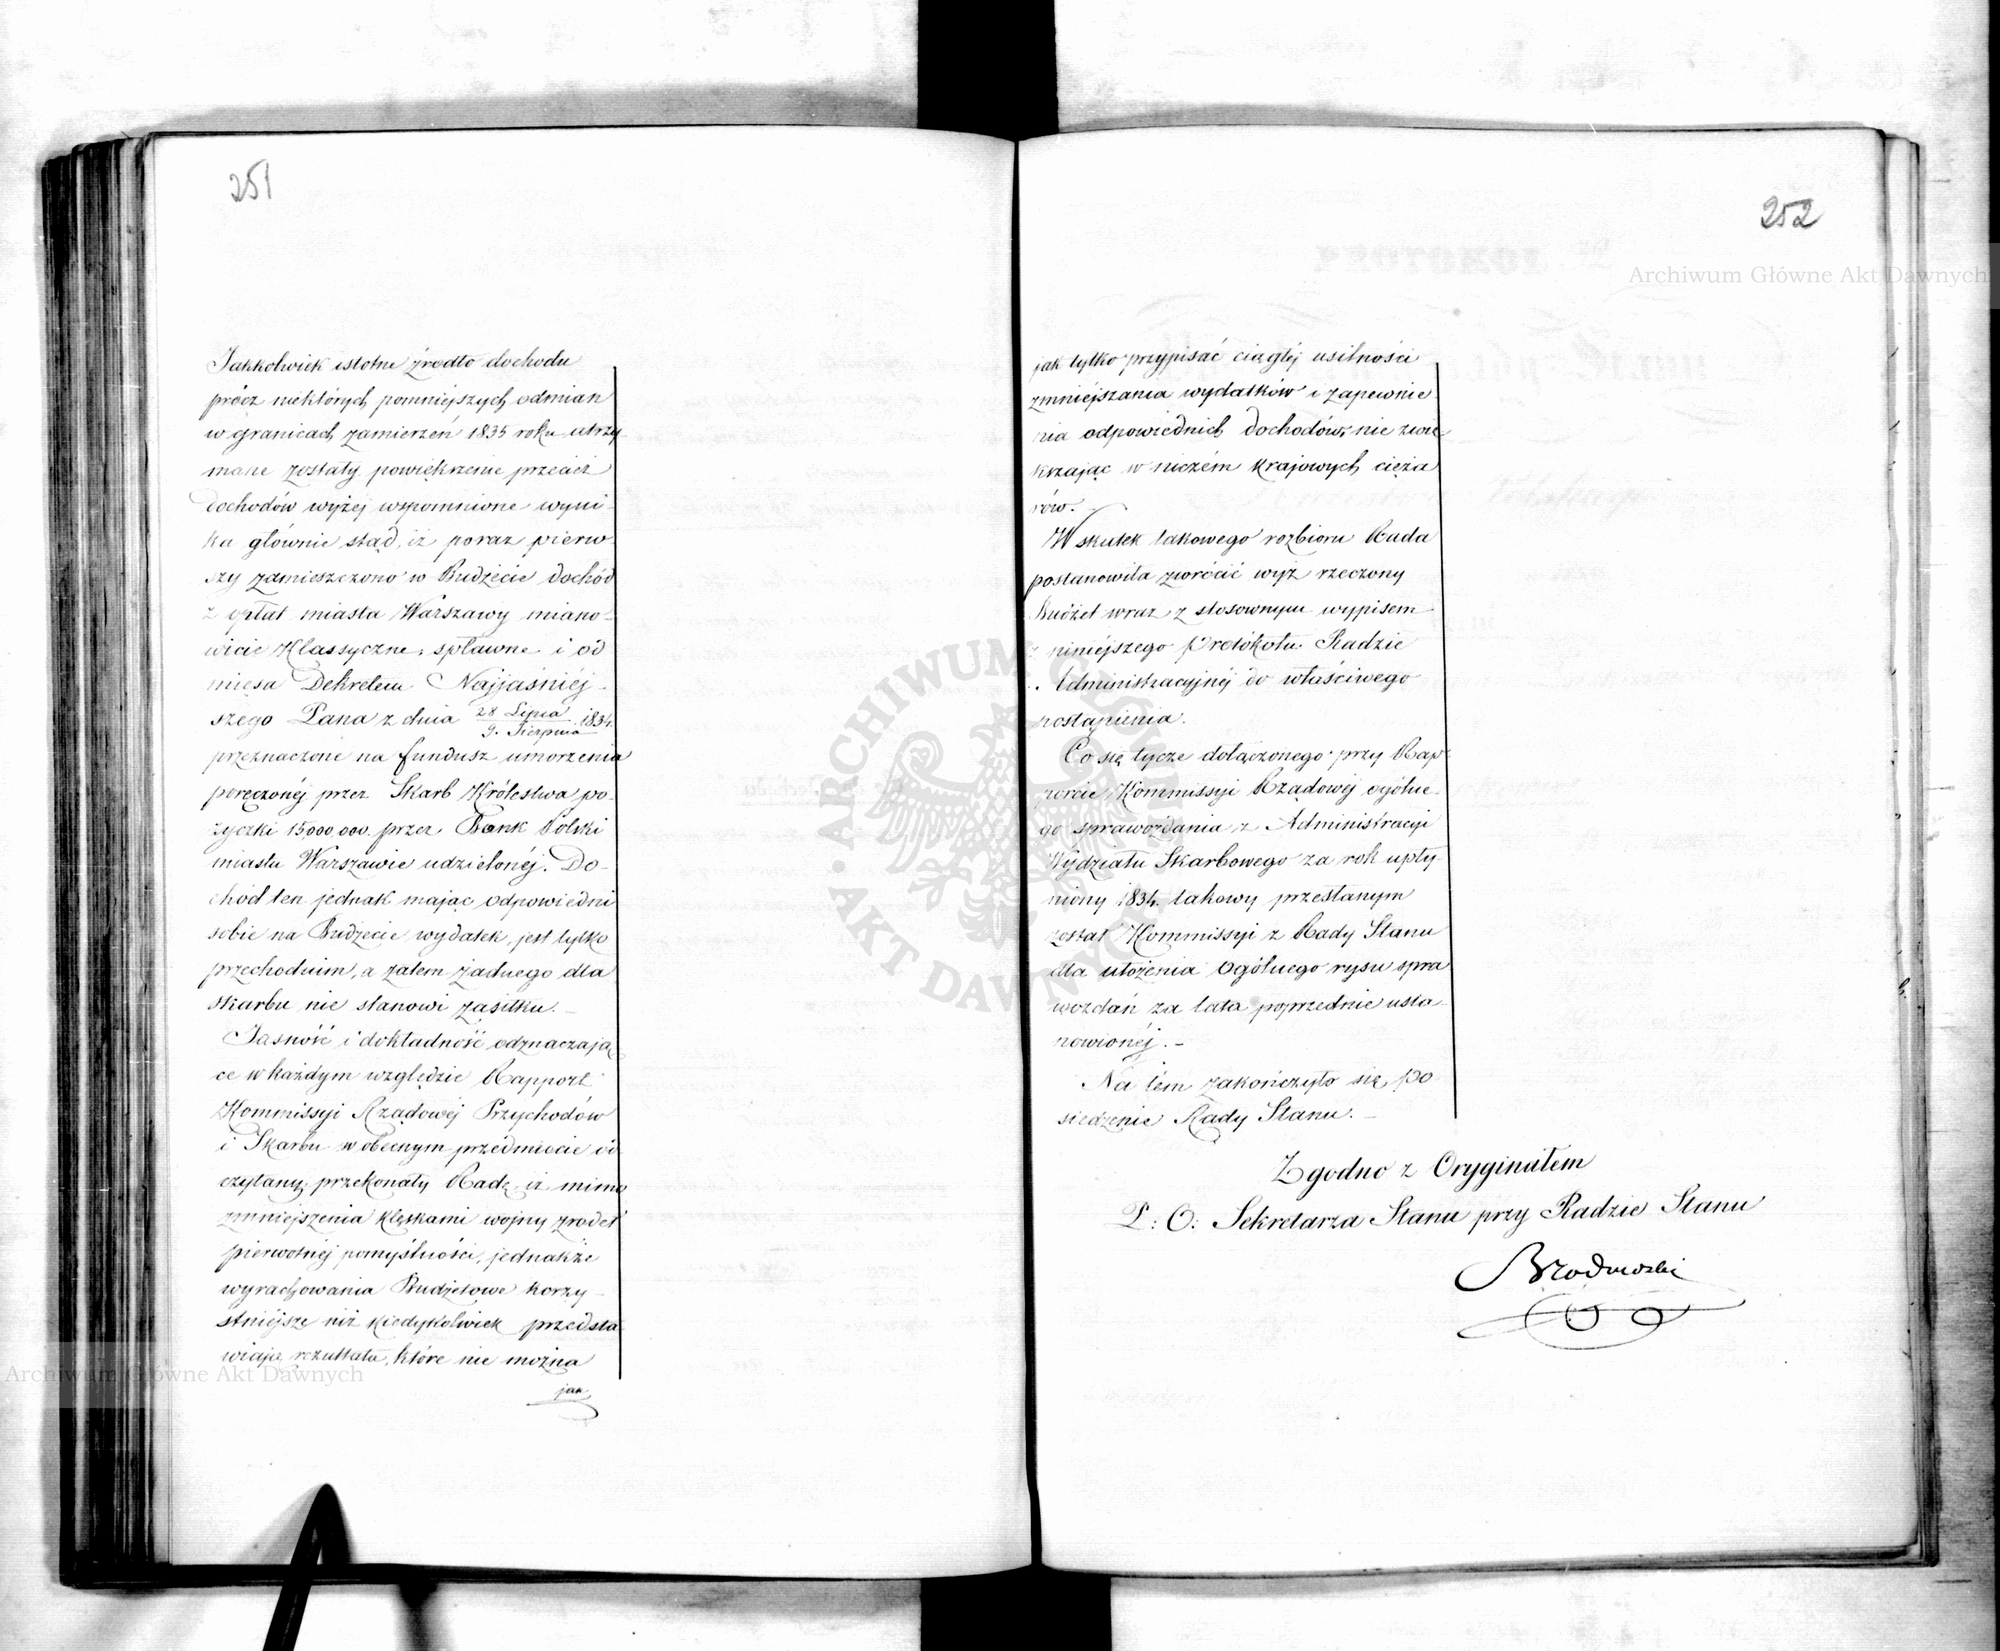 251
Jakkolwiek istotne źrodło dochodu
prócz niektórych pomniejszych odmian
w granicach zamierzeń 1835 roku utrzy-
mane zostały powiększenie przecież
dochodów wyżej wspomnione wyni-
ka głównie stąd, iż poraz pierw-
szy zamieszczono w Budżecie dochód
z opłat miasta Warszawy miano-
wicie Klassyczne, spławne i od
mięsa Dekretem Najjaśniej-
szego Pana z dnia 28 Lipca / 9. Sierpnia 1834.
przeznaczone na fundusz umorzenia
poręczonéj przez Skarb Królestwa po-
życzki 15000,000. przez Bank Polski
miastu Warszawie udzielonéj. Do-
chod ten jednak mając odpowiedni
sobie na Budżecie wydatek, jest tylko
przechodnim, a zatem żadnego dla
skarbu nie stanowi zasiłku. _
Jasność i dokładność odznaczają
ce w każdym względzie Rapport
Kommissyi Rządowéj Przychodów
i Skarbu w obecnym przedmiocie od
czytany, przekonały Radę, iż mimo
zmniejszenia klęskami wojny zrodeł
pierwotnéj pomyślności, jednakże
wyrachowania Budżetowe korzy-
stniejsze niż kiedykolwiek przedsta
wiają rezultata, które nie można
jak
252
jak tylko przypisać ciągłéj usilności
zmniejszania wydatków i zapewnie
nia odpowiednich dochodów, nie zwię
kszając w niczém krajowych cięża
rów.
W skutek takowego rozbioru Rada
postanowiła zwrócić wyż rzeczony
Budżet wraz z stosownym wypisem
z niniejszego Protokołu Radzie
Administracyjnéj do właściwego
postąpienia.
Co się tycze dołączonego przy Rap-
porcie Kommissyi Rządowéj ogólne-
go sprawozdania z Administracyi
Wydziału Skarbowego za rok upły-
niony 1834. takowy przesłanym
został Kommissyi z Rady Stanu
dla ułożenia ogólnego rysu spra
wozdań za lata poprzednie usta-
nowionéj. _
Na tém zakończyło się po
siedzenie Rady Stanu. _
Zgodno z Oryginałem
P: O: Sekretarza Stanu przy Radzie Stanu
Brodowski
Archiwum Główne Akt Dawnych
Archiwum Główne Akt Dawnych
ARCHIWUM GŁÓWNE AKT DAWNYCH